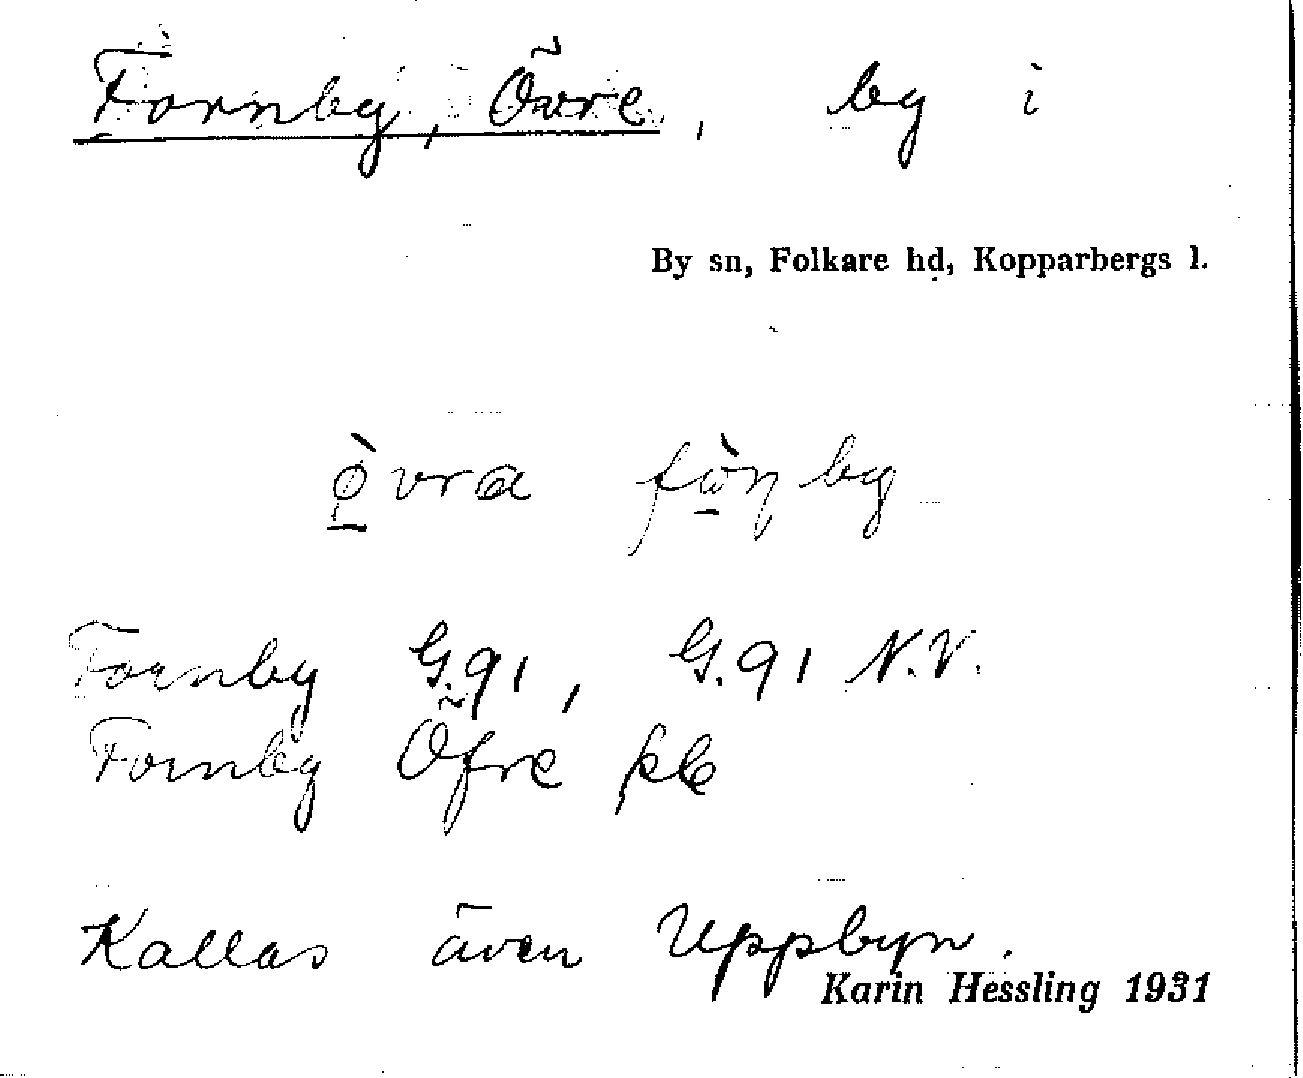 Fornby, Övre, by i
By sn, Folkare hd, Kopparbergs l.
ø̀vra fòn̥by
Fornby G.91, G.91 N.V.
Fornby Öfre
Kallas även Uppbyn.
Karin Hessling 1931